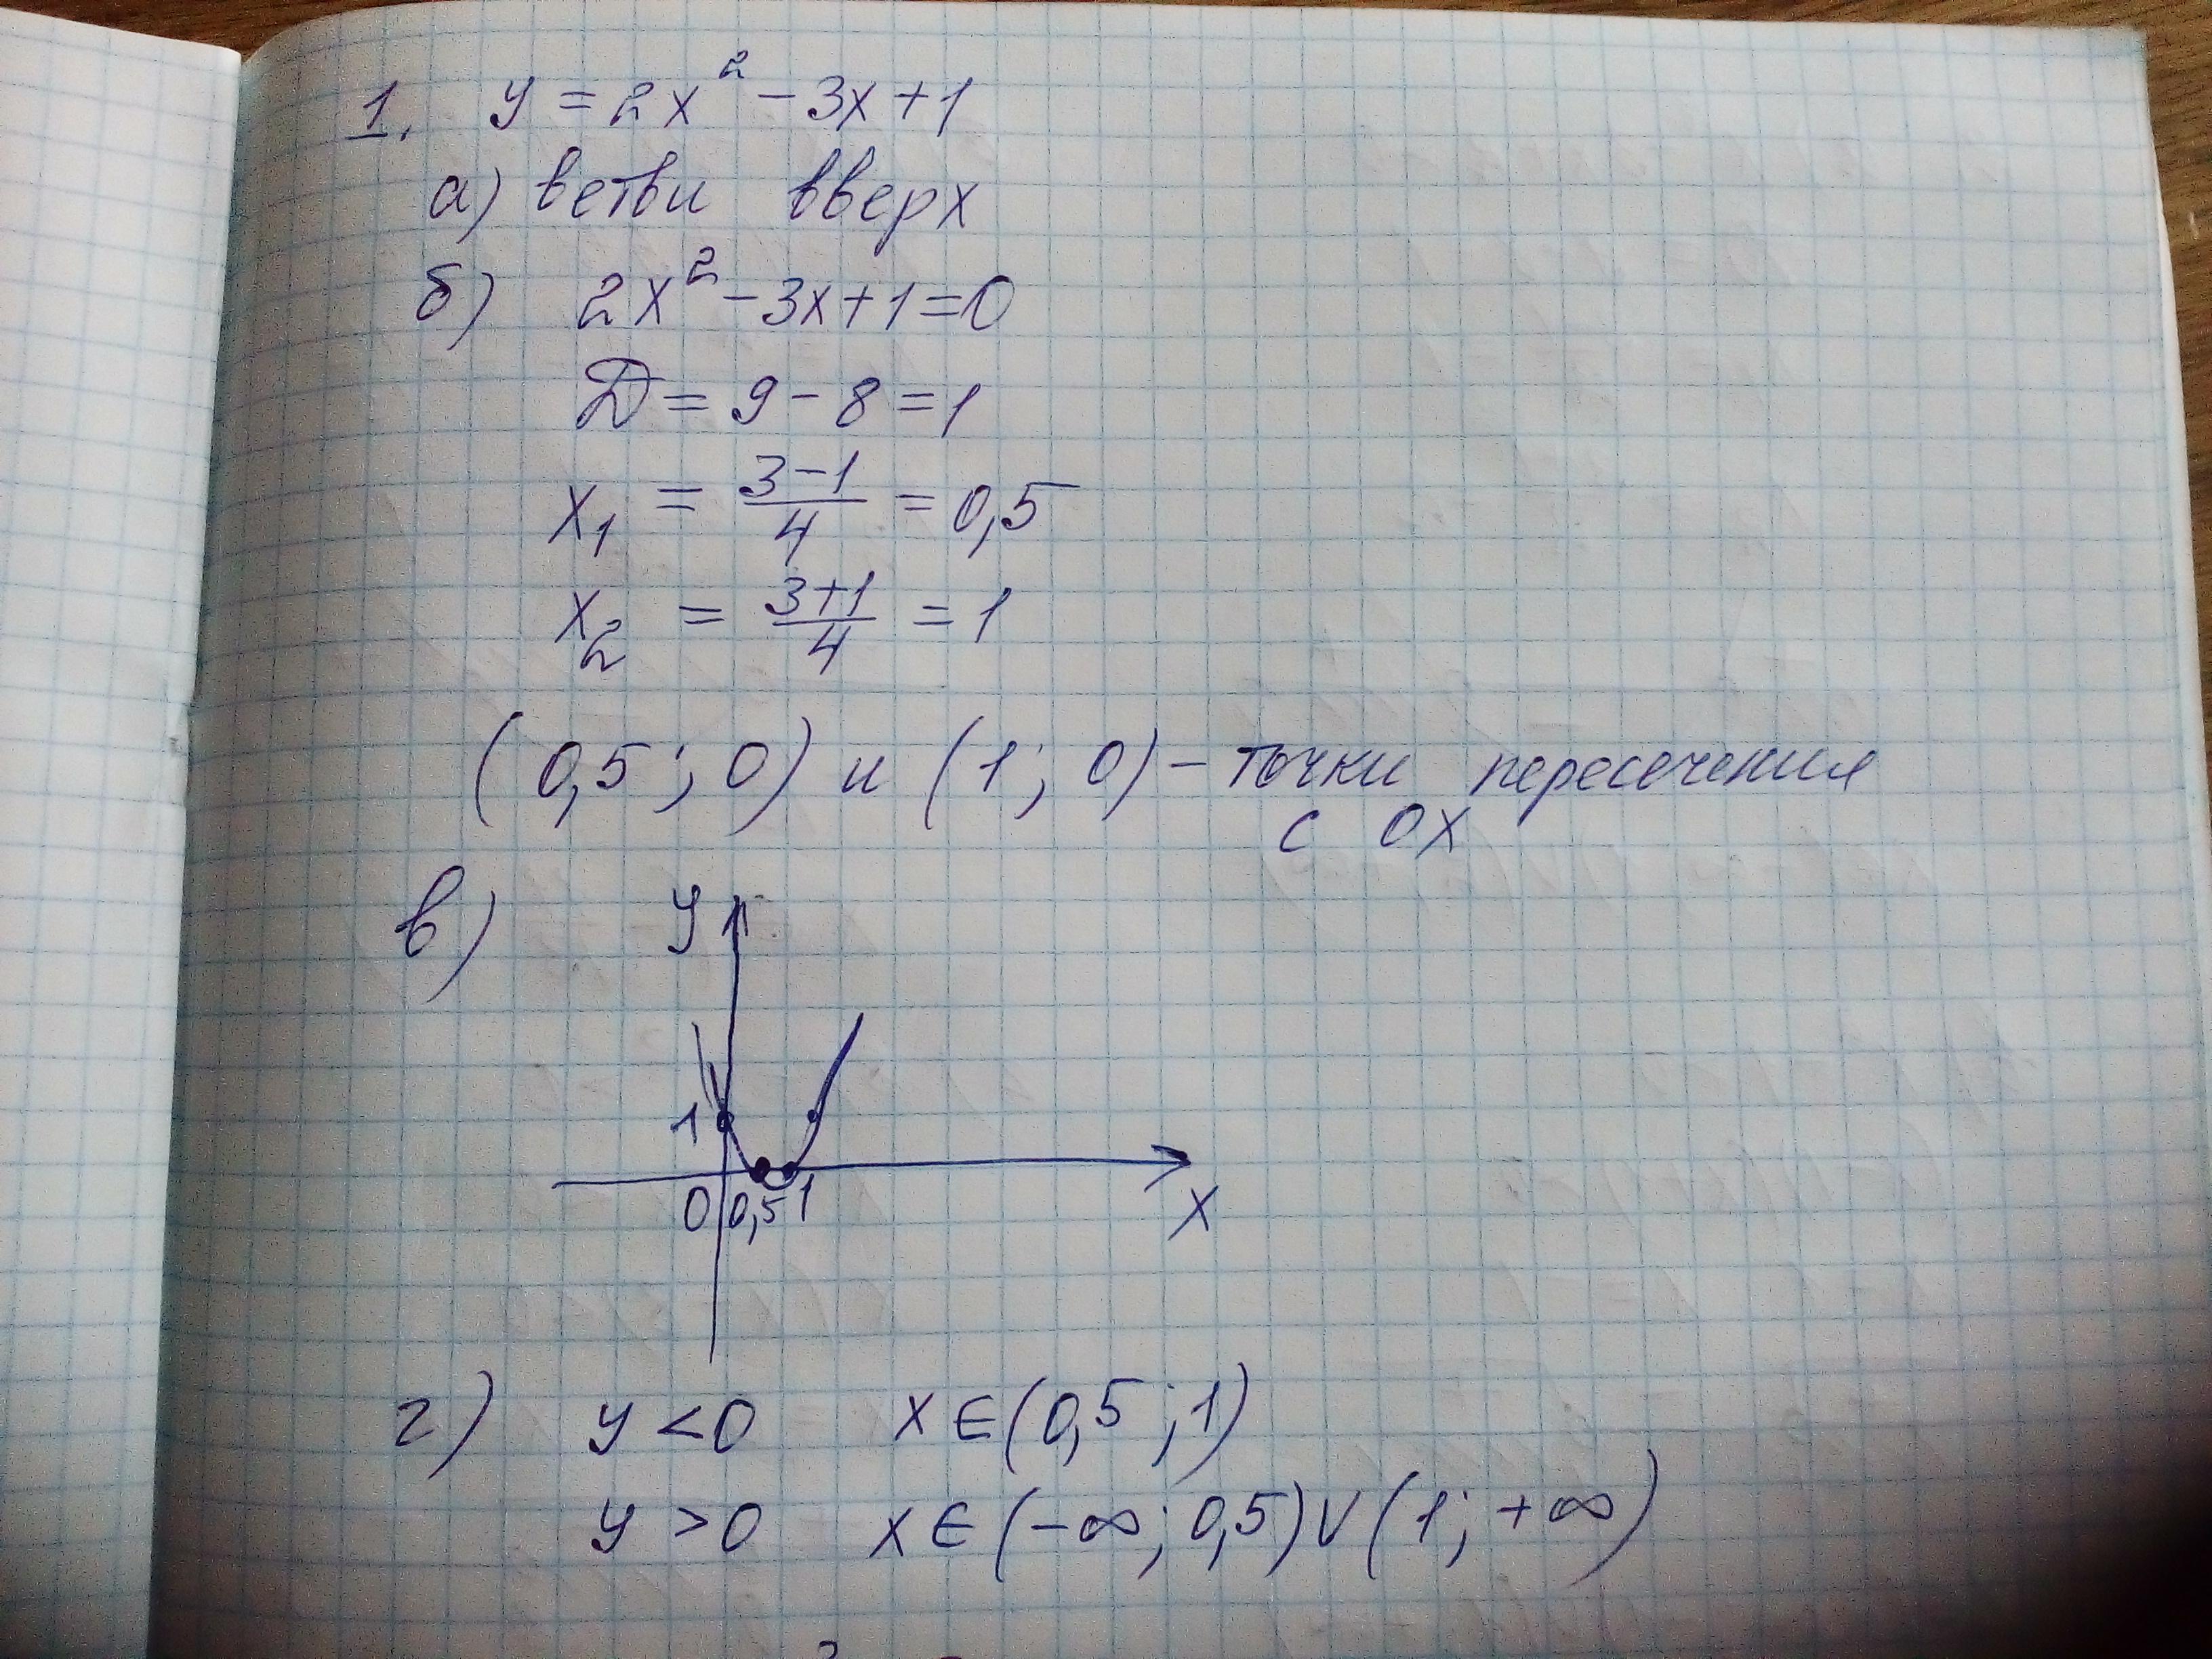 1. y = 2x² - 3x + 1
а) ветви вверх
б) 2x² - 3x + 1 = 0
D = 9 - 8 = 1
x₁ = (3-1)/4 = 0,5
x₂ = (3+1)/4 = 1
(0,5; 0) и (1; 0) - точки пересечения
с ОХ
в) y
1
0 0,5 1 x
г) y < 0 x ∈ (0,5; 1)
y > 0 x ∈ (-∞; 0,5) ∪ (1; +∞)